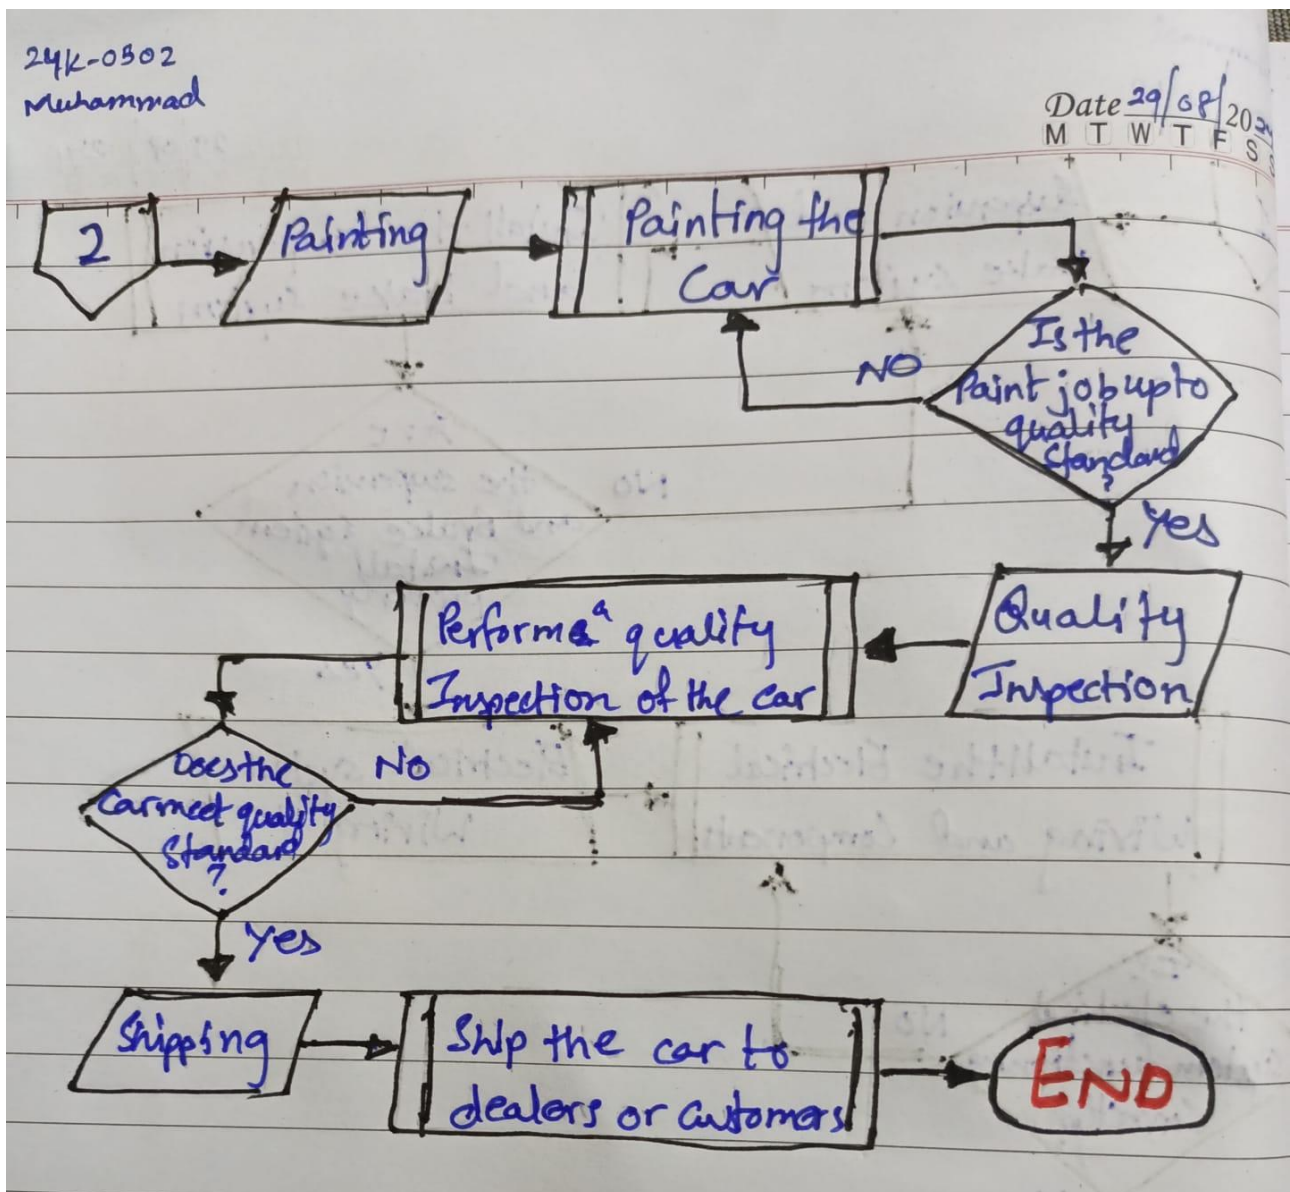 24K-0502
Muhammad
Date 29/08/2024
M T W T F S
2
Painting
Painting the
Car
Is the
Paint job upto
quality
Standard
?
NO
Yes
Quality
Inspection
Perform a quality
Inspection of the car
Does the
Car meet quality
Standard
?
NO
Yes
Shipping
Ship the car to
dealers or customers
END